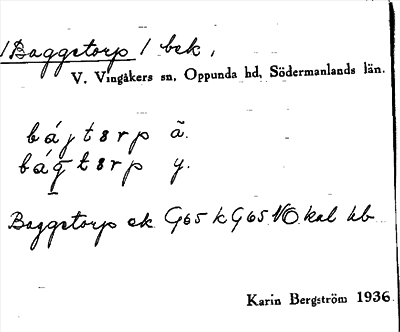 /Baggetorp/ bek,
V. Vingåkers sn, Oppunda hd, Södermanlands län.
bájtsrp ä.
bágtsrp y.
Baggetorp ek G65 k G65 NO kal hb
Karin Bergström 1936